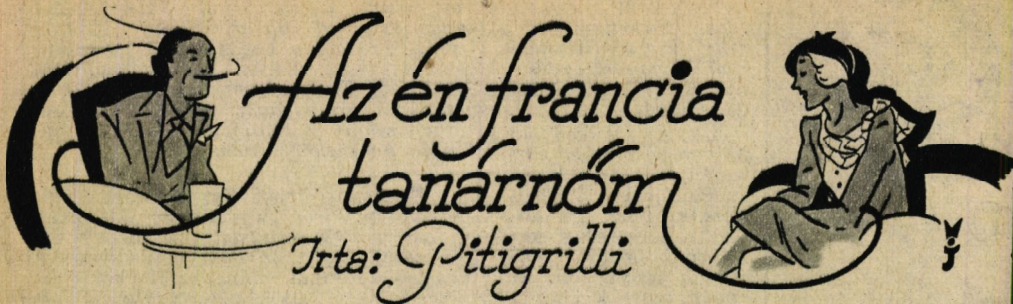 Az én francia
tanárnőm
Irta: Pitigrilli